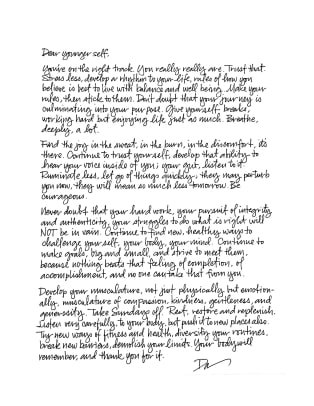 Dear younger self,
You're on the right track. You really really are. Trust that.
Stress less, develop a rhythm to your life, rules of how you
believe is best to live with balance and well being. Make your
rules, then stick to them. Don't doubt that your journey is
culminating into your purpose. Give yourself breaks,
working hard but enjoying life just as much. Breathe,
deeply, a lot.
Find the joy in the sweat, in the burn, in the discomfort, it's
there. Continue to trust yourself, develop that ability to
hear your voice inside of you, your gut, listen to it.
Ruminate less, let go of things quickly, they may perturb
you now, they will mean so much less tomorrow. Be
courageous.
Never doubt that your hard work, your pursuit of integrity
and authenticity, your struggles to do what is right will
NOT be in vain. Continue to find new, healthy ways to
challenge yourself, your body, your mind. Continue to
make goals, big and small, and strive to meet them,
because nothing beats that feeling of completion, of
accomplishment, and no one can take that from you.
Develop your musculature, not just physically but emotion-
ally, musculature of compassion, kindness, gentleness, and
generosity. Take Sundays off. Rest, restore and replenish.
Listen very carefully, to your body, but push it to new places also.
Try new ways of fitness and health, diversify your routines,
break new barriers, demolish your limits. Your body will
remember, and thank you for it.